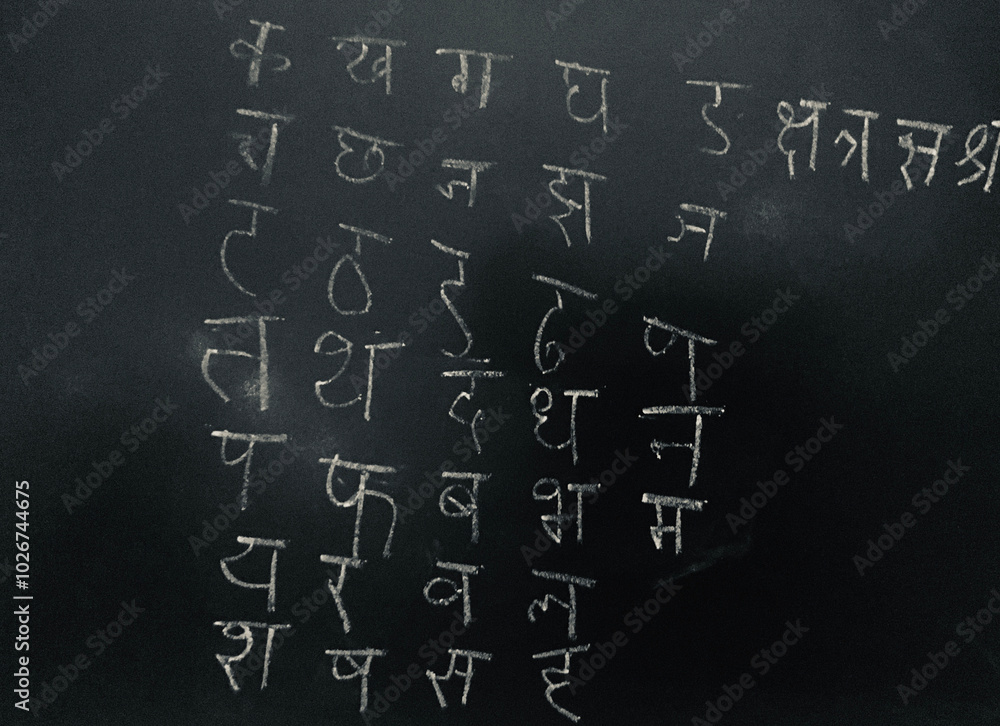 क ख ग घ ङ क्ष त्र ज्ञ श्र
च छ ज झ ञ
ट ठ ड ढ ण
त थ द ध न
प फ ब भ म
य र व ल
श ष स ह
Adobe Stock | #1026744675